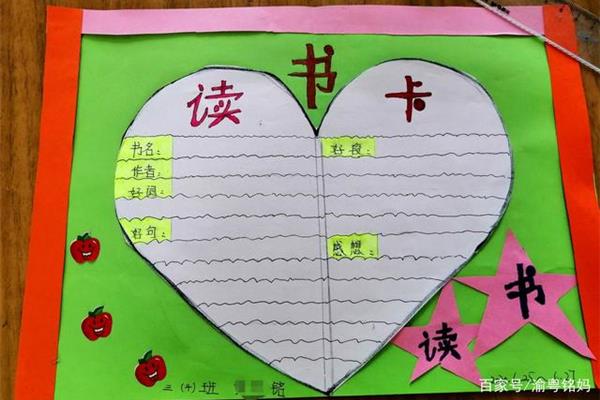 读书卡
书名:
作者:
好词:
好句:
好段:
感想:
读书
三(4)班 铭
百家号/渝粤铭妈